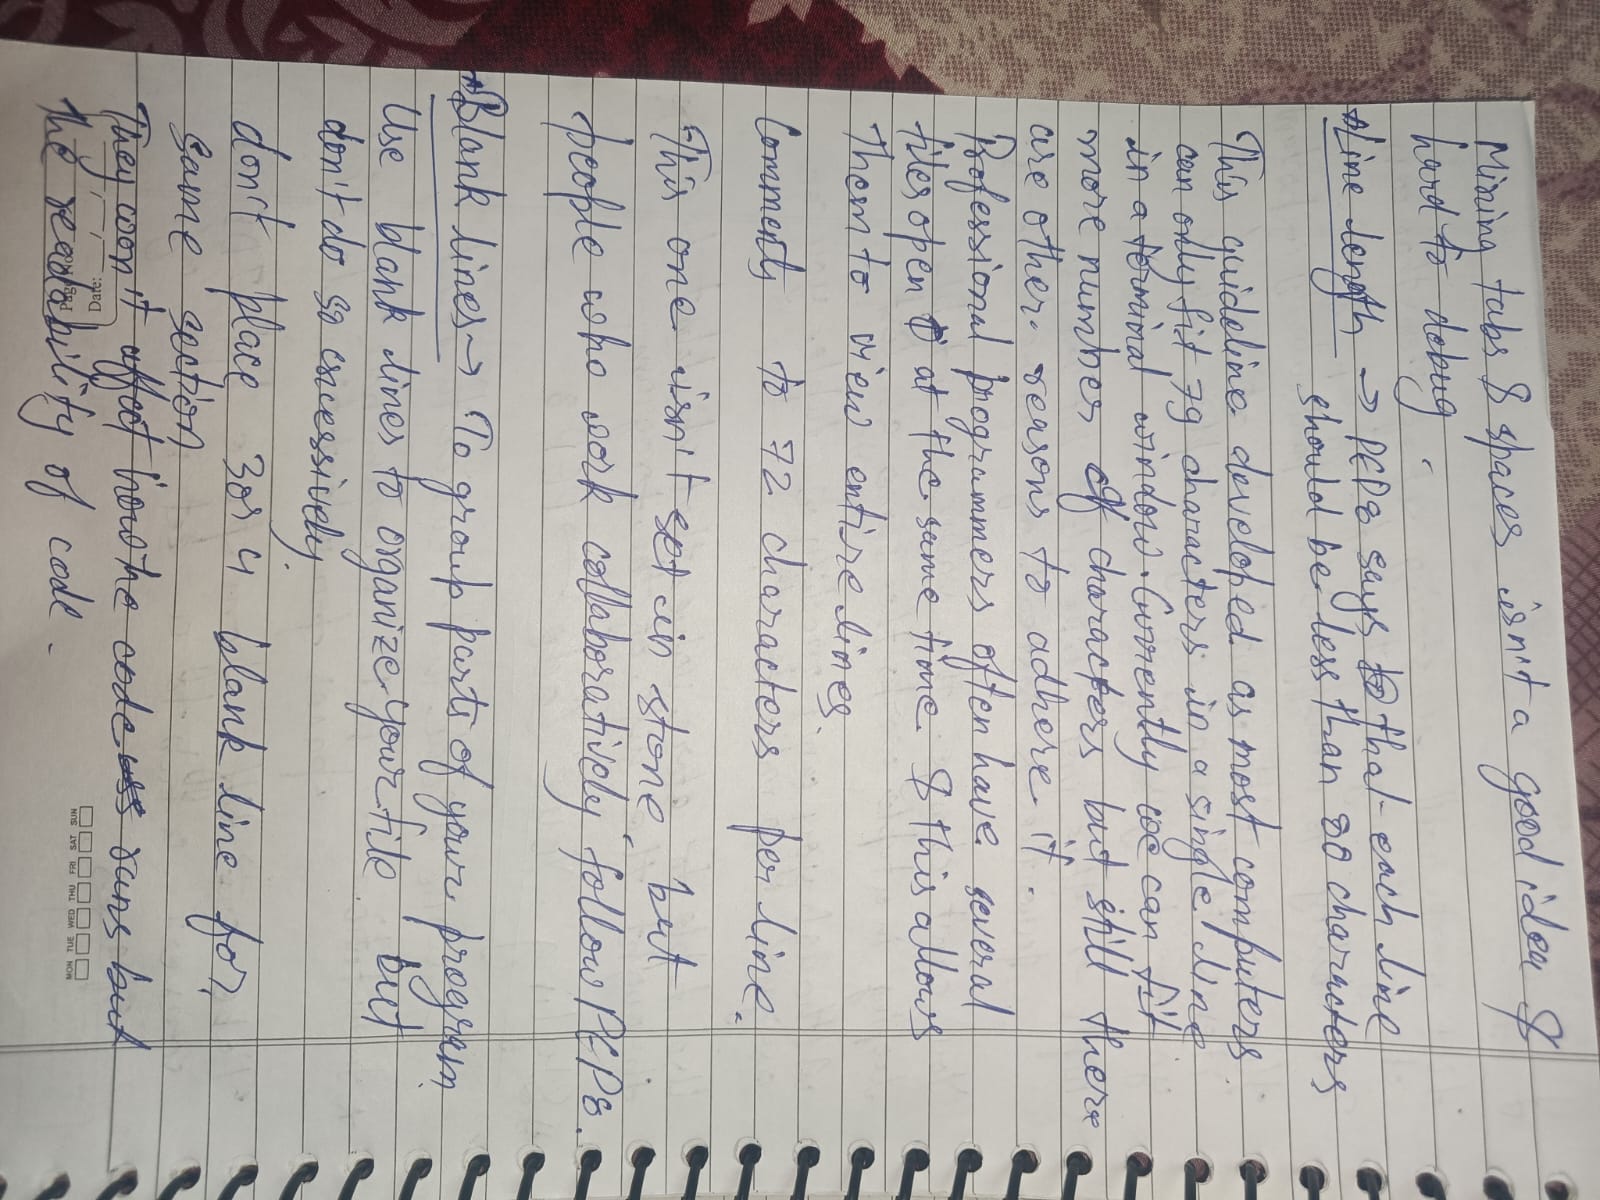 Mixing tabs & spaces isn't a good idea &
hard to debug.
*Line length → PEP8 says that each line
should be less than 80 characters
This guideline developed as most computers
can only fit 79 characters in a single line
in a terminal window. Currently we can fit
more number of characters but still there
are other reasons to adhere it.
Professional programmers often have several
files open at the same time & this allows
them to view entire lines.
Comments to 72 characters per line.
"This one isn't set in stone but
people who work collaboratively" follow PEP8.
*Blank lines → To group parts of your program
Use blank lines to organize your file but
don't do so excessively.
don't place 3 or 4 blank line for
same section
They won't affect how the code runs but
the readability of code.
Page No.
Date:
MON TUE WED THU FRI SAT SUN